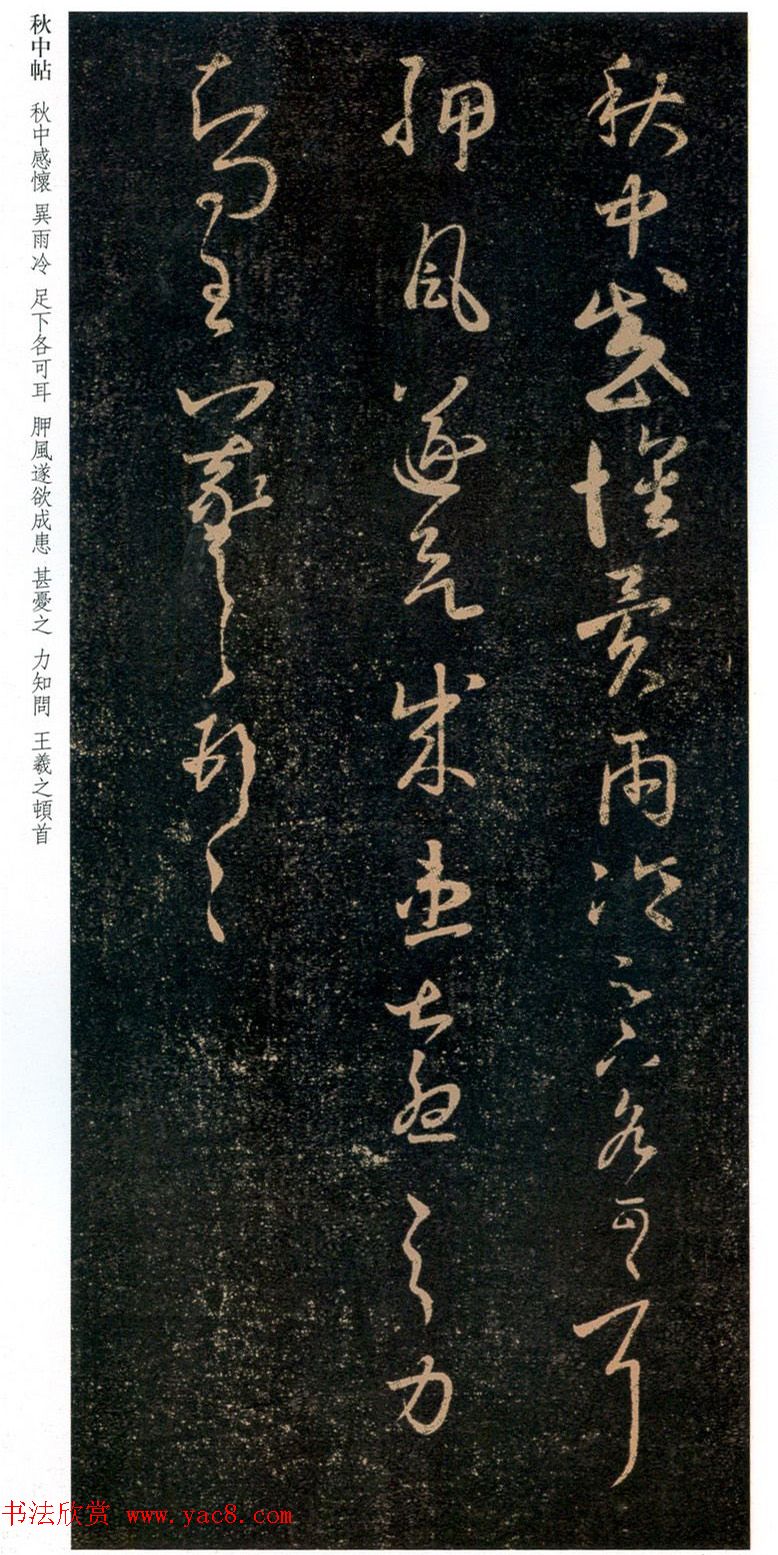 秋中感懷異雨冷足下各可耳
胛風遂欲成患甚憂之力
知問王羲之頓首
秋中帖 秋中感懷 異雨冷 足下各可耳 胛風遂欲成患 甚憂之 力知問 王羲之頓首
书法欣赏 www.yac8.com